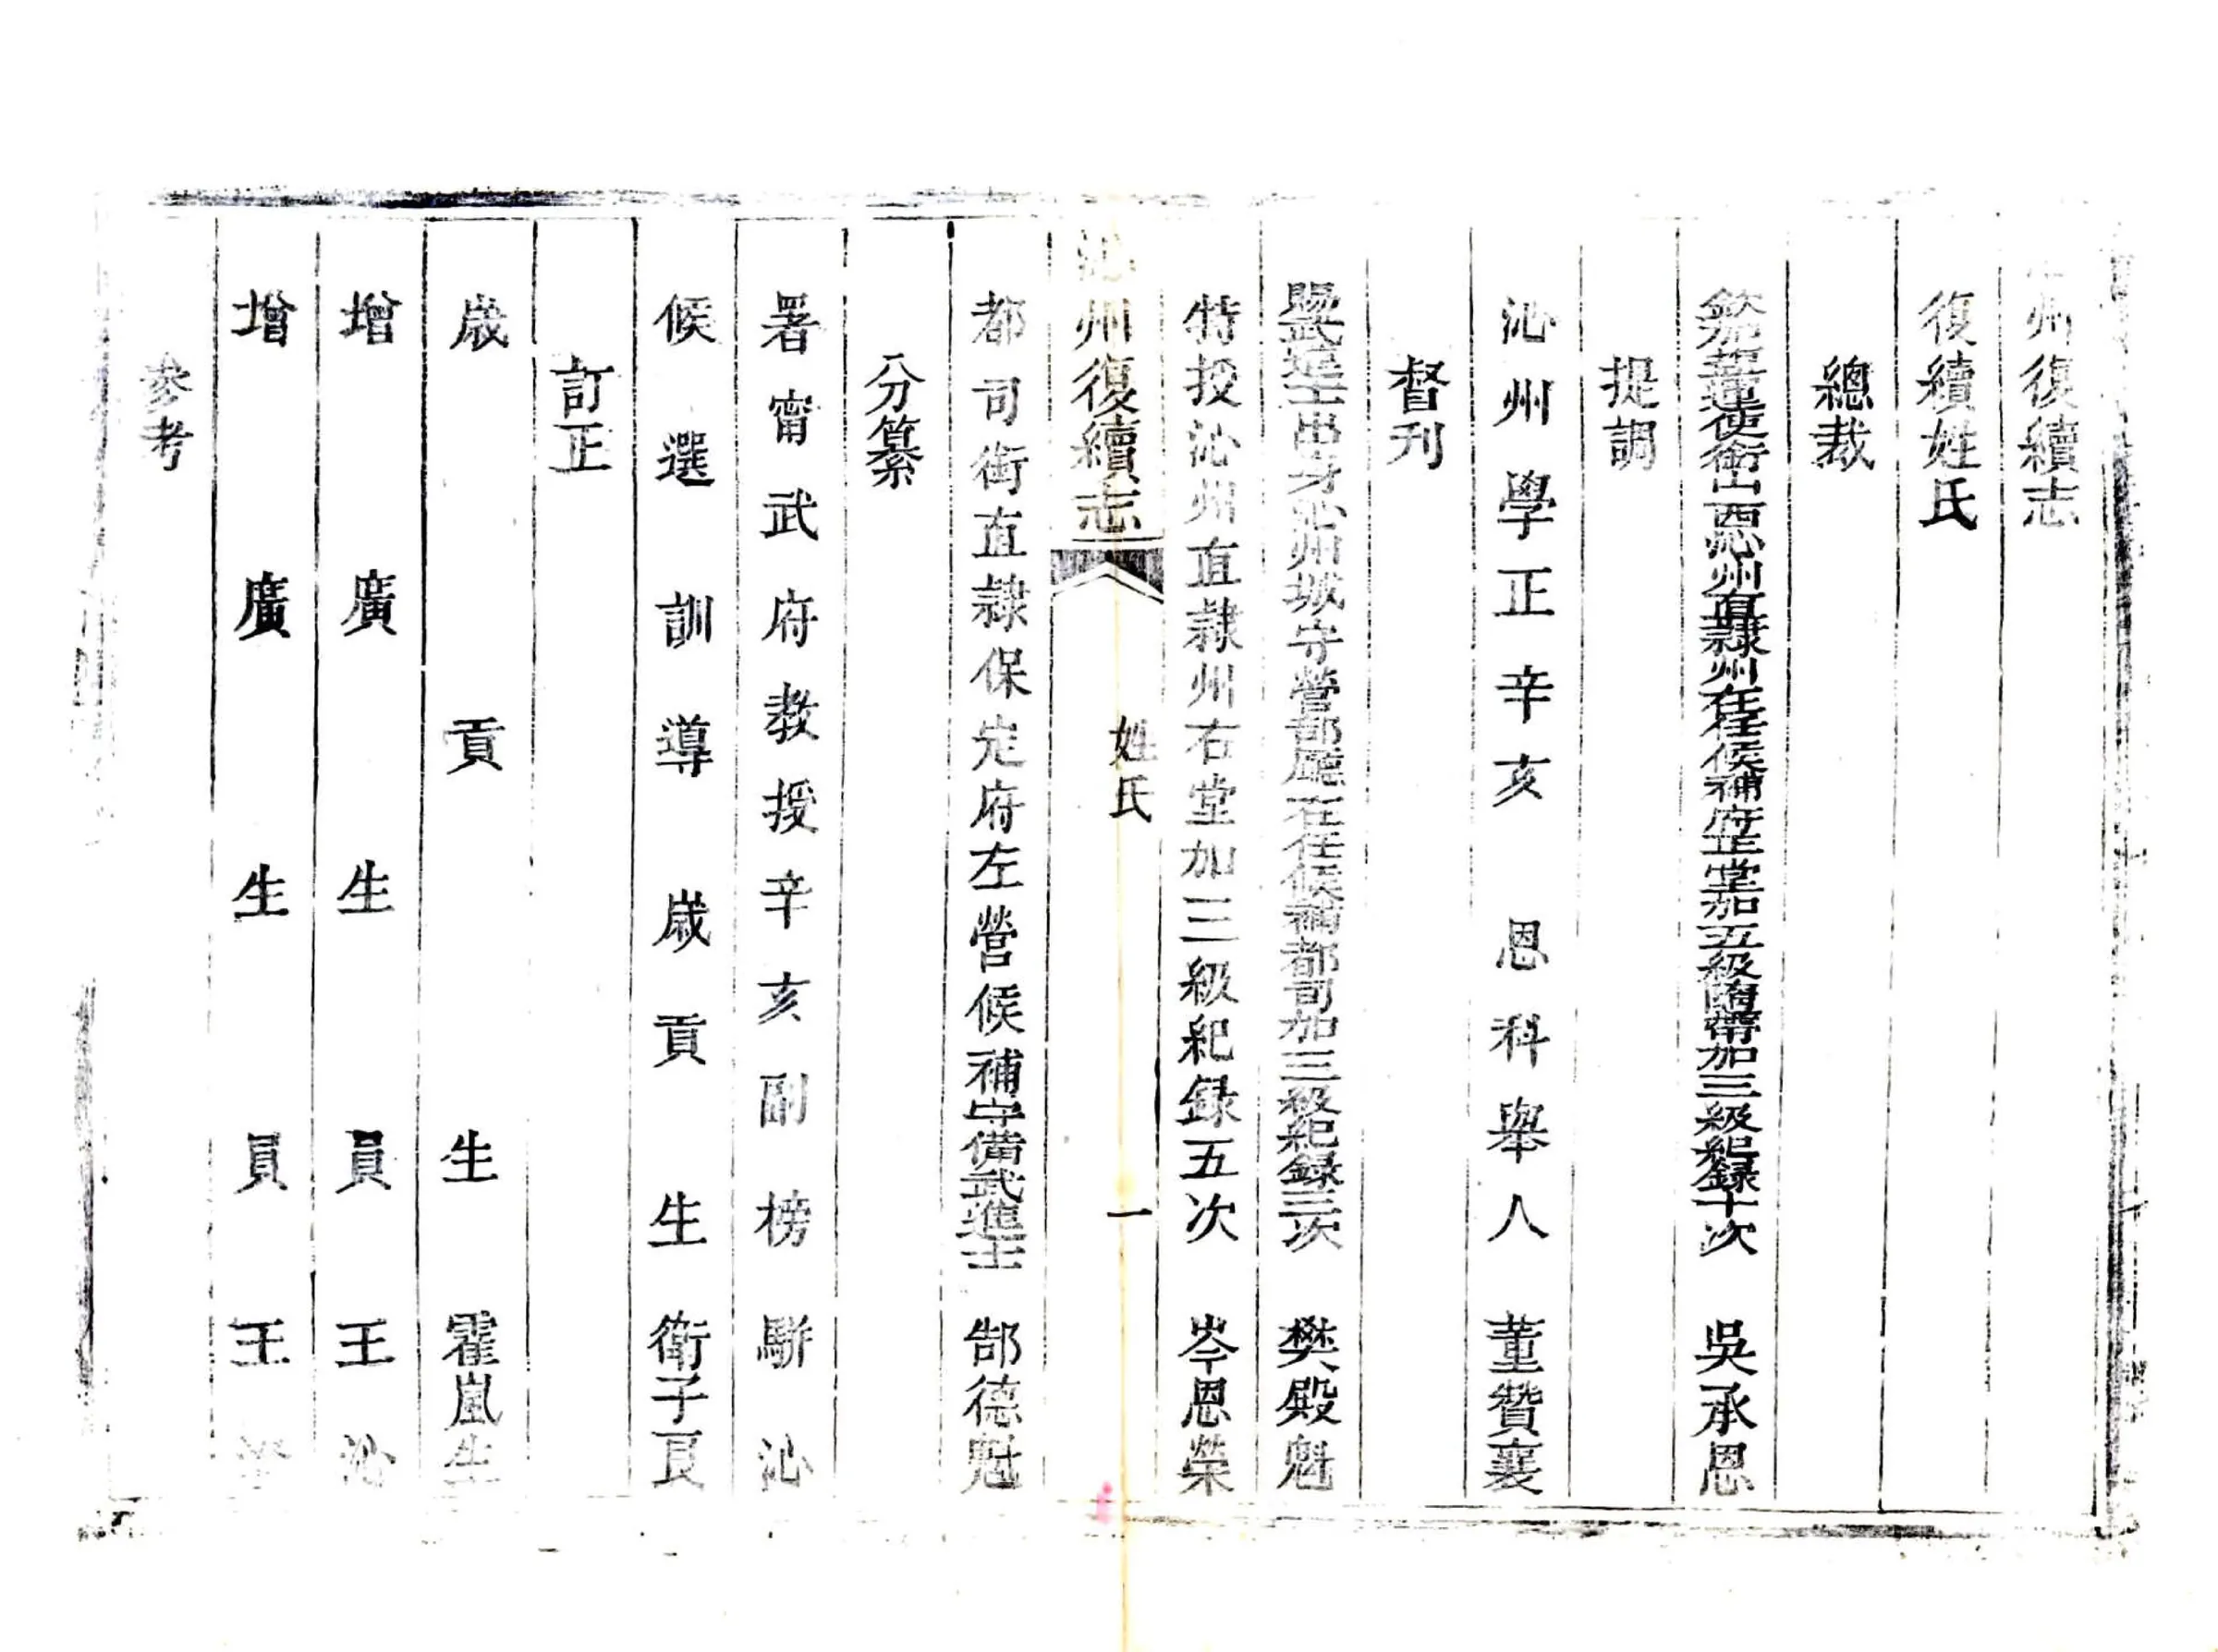 州復續志
復續姓氏
總裁
欽加鹽運使銜山西沁州直隸州在任候補府正堂加五級隨帶加三級紀錄十次 吳承恩
提調
沁州學正辛亥 恩科舉人 董贊襄
督刊
武進士出身沁州城守營部廳在任候補都司加三級紀錄三次 樊殿魁
特授沁州直隸州右堂加三級紀錄五次 岑恩榮
沁州復續志 姓氏 一
都司銜直隸保定府左營候補守備武進士 郜德魁
分纂
署甯武府教授辛亥副榜 駢沁
候選訓導歲貢生 衛子良
訂正
歲貢生 霍嵐生
增廣生員 王沁
增廣生員 王
參考